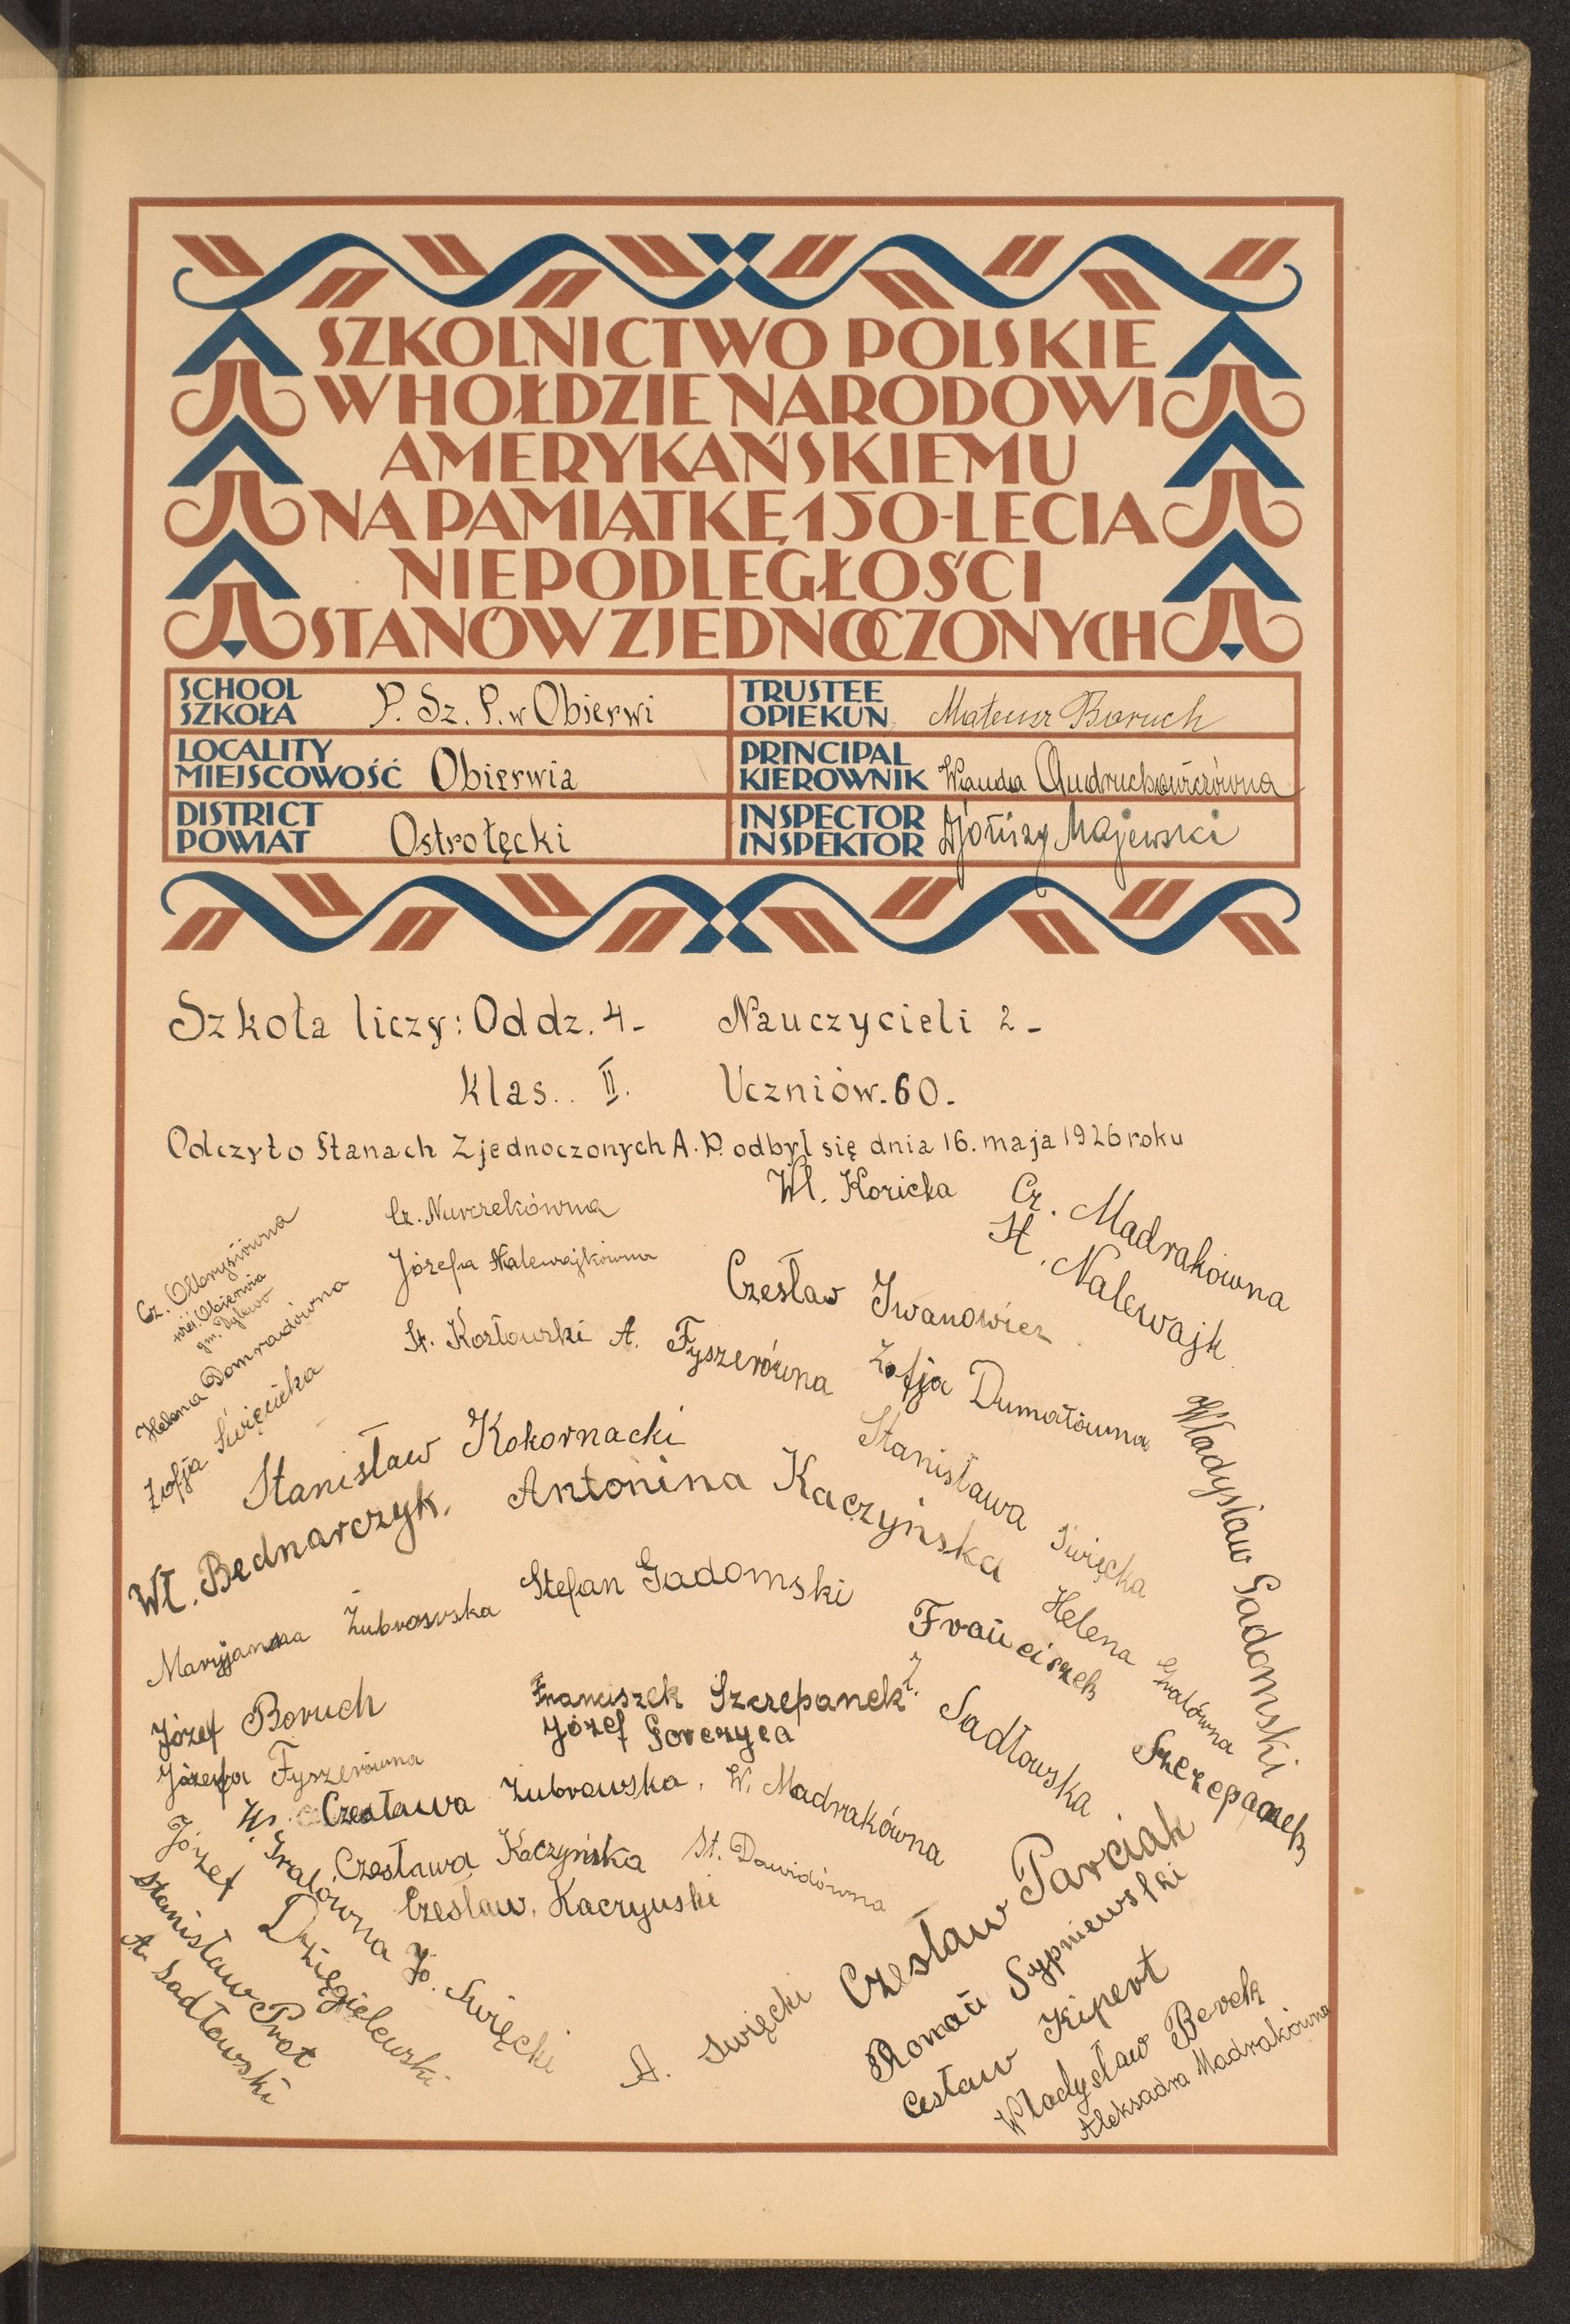 SZKOLNICTWO POLSKIE
W HOŁDZIE NARODOWI
AMERYKAŃSKIEMU
NA PAMIĄTKĘ 150-LECIA
NIEPODLEGŁOŚCI
STANÓW ZJEDNOCZONYCH
SCHOOL
SZKOŁA
P. Sz. P. w Obierwi
TRUSTEE
OPIEKUN
Mateusz Boruch
LOCALITY
MIEJSCOWOŚĆ
Obierwia
PRINCIPAL
KIEROWNIK
Wanda
DISTRICT
POWIAT
Ostrołęcki
INSPECTOR
INSPEKTOR
Majewski
Szkoła liczy: Oddz. 4- Nauczycieli 2-
Klas.. II. Uczniów. 60.-
Odczyt o Stanach Zjednoczonych A. P. odbył się dnia 16. maja 1926 roku
Wł. Kozicka
Cz. Madrakówna
St. Nalewajk
Cz. Nurczekówna
Józefa Nalewajkówna
Cz. Olbrysiówna
wieś Obierwia
gm. Dylewo
Helena Domradówna
Zofja Święcicka
Czesław Iwanowicz
St. Kozłowski
A. Fyszerówna
Zofja Dumałówna
Władysław Gadomski
Stanisław Kokornacki
Stanisława Święcka
Wł. Bednarczyk.
Antonina Kaczyńska
Marijanna Żubrowska
Stefan Gadomski
Helena Gralówna
Franciszek Szczepanek
Józef Boruch
Franciszek Szczepanek
Z. Sadłowska
Józef Gorczyca
Józefa Fyszerówna
Czesława Żubrowska.
W. Madrakówna
W. Gralówna
Czesława Kaczyńska
St. Dawidówna
Józef Dzięgielewski
Czesław. Kaczyński
Stanisław Prot
A. Sadłowski
Jó. Święcki
A. Święcki
Czesław Parciak
Romań Sypniewski
Cesław Kipert
Władysław Berek
Aleksadra Madrakówna